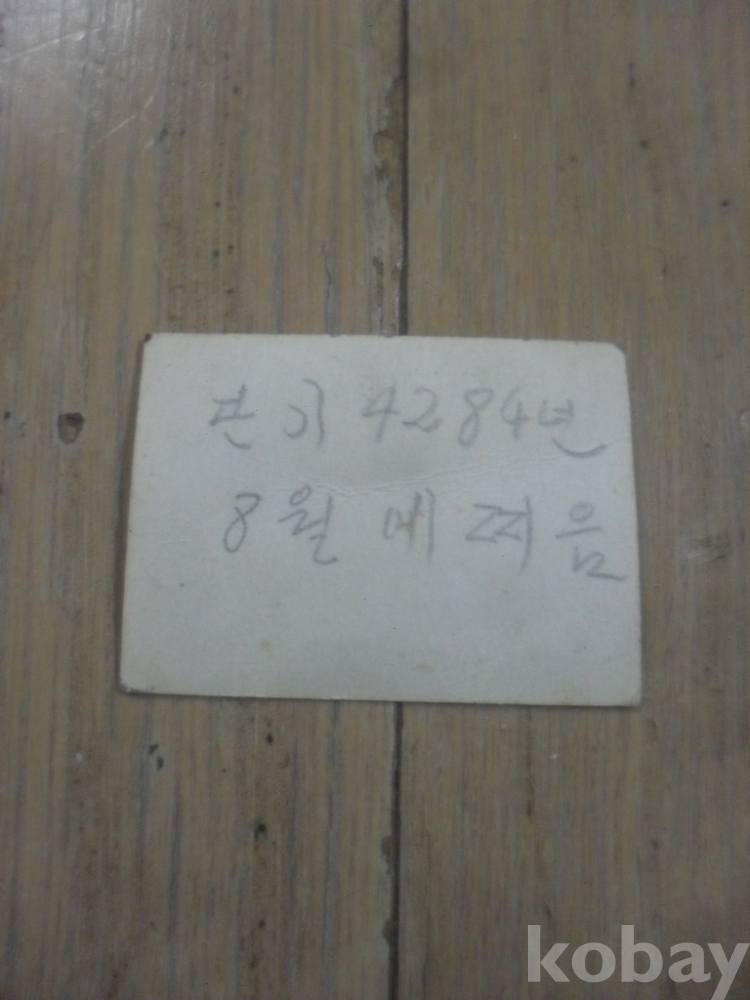 단기 4284년
8월 에 찌음
kobay